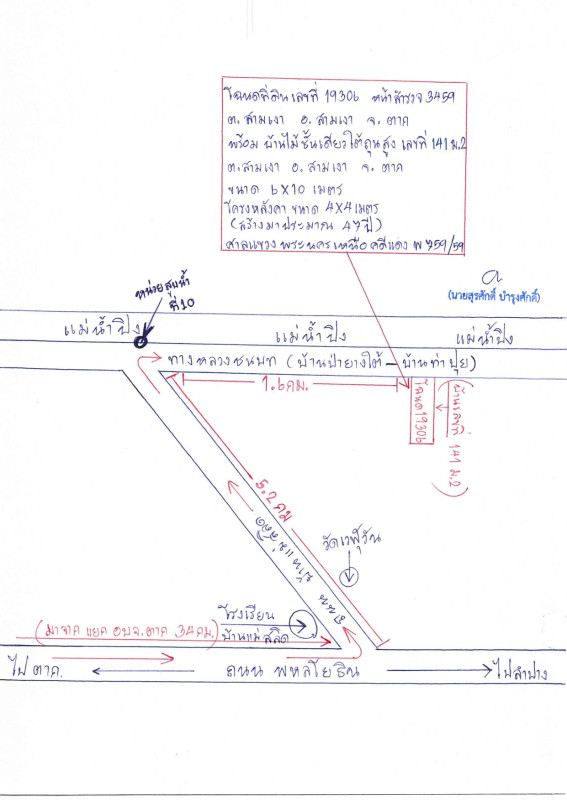 โฉนดที่ดินเลขที่ 19306 หน้าสำรวจ 3459
ต. สามเงา อ. สามเงา จ. ตาก
พร้อม บ้านไม้ชั้นเดียวใต้ถุนสูง เลขที่ 141 ม.2
ต. สามเงา อ. สามเงา จ. ตาก
ขนาด 6X10 เมตร
โครงหลังคา ขนาด 4X4 เมตร
(สร้างมาประมาณ 47 ปี)
ศาลแขวง พระนครเหนือ คดีแดง พ 759/59
(นายสุรศักดิ์ บำรุงศักดิ์)
หน่วยสูบน้ำ
ที่ 10
แม่น้ำปิง
แม่น้ำปิง
แม่น้ำปิง
ทางหลวงชนบท (บ้านป่ายางใต้ - บ้านท่าปุย)
1.6 คม.
โฉนด 19306
(บ้านเลขที่ 141 ม.2)
5.2 คม
ถนน บ้านแม่สลิด
วัดเวฬุวัน
โรงเรียน
บ้านแม่สลิด
(มาจาก แยก อบจ.ตาก 34 คม.)
ไป ตาก.
ถนน พหลโยธิน
ไปลำปาง